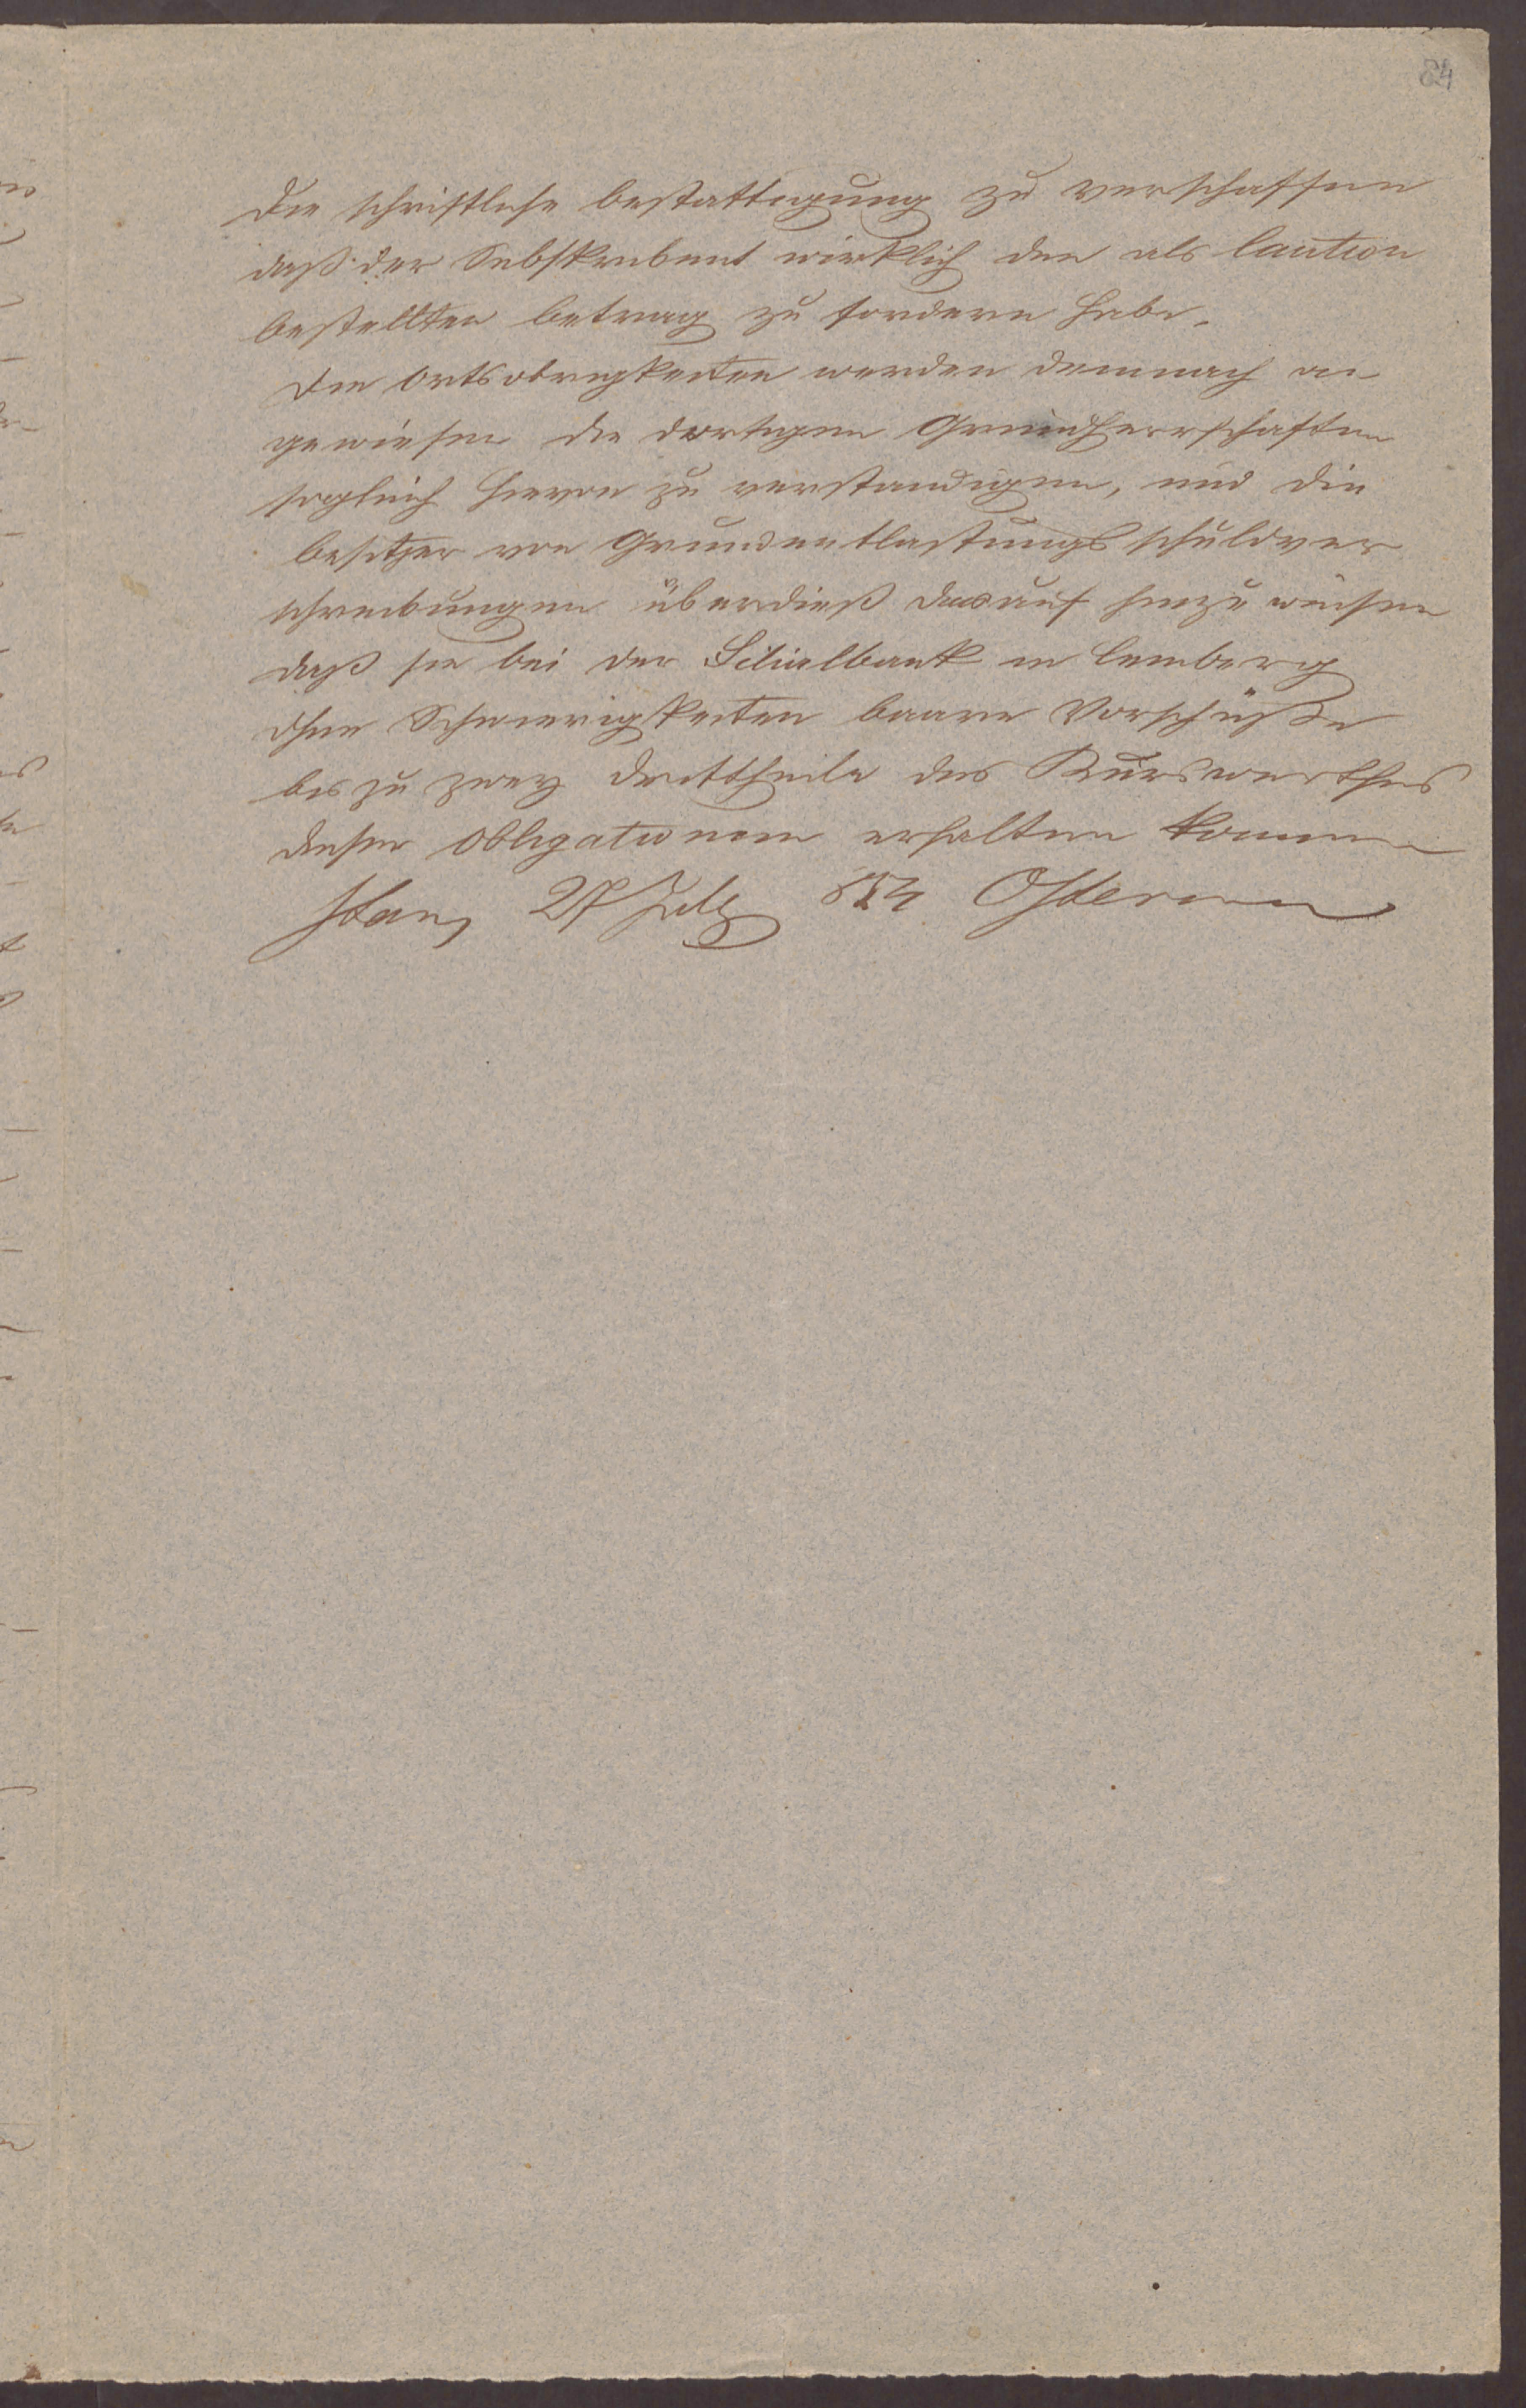 84
die schriftliche bestattigung zu verschaffen
daß der Subskribent wirklich den als Caution
bestellten betrag zu fordern habe.
Die Ortsobrigkeiten werden demnach an
gewiesen die dortigen Grundherrschaften
sogleich hievon zu verstandigen, und die
besitzer von Grundentlastungs schuldver
schreibungen überdieß darauf hinzu weisen
daß sie bei der Filialbank in Lemberg
ohne Schwierigkeiten baare Vorschüße
bis zu zwey dritttheile des Kurswerthes
dieser Obligationen erhalten konnen
Stan, 27 July 854